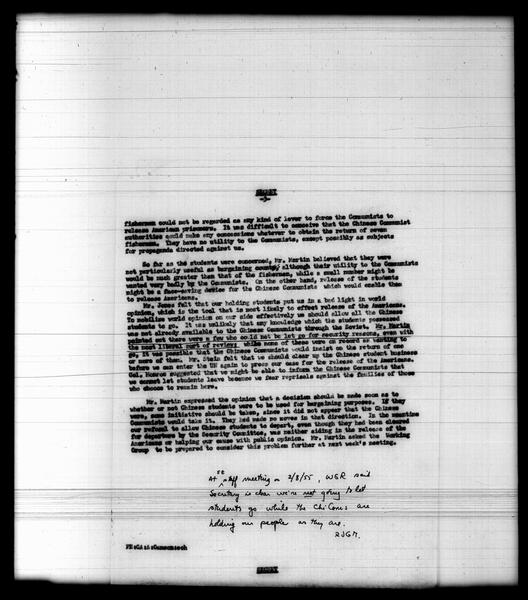 SECRET
-3-
fishermen could not be regarded as any kind of lever to force the Communists to
release American prisoners. It was difficult to conceive that the Chinese Communist
authorities would make any concessions whatever to obtain the return of seven
fishermen. They have no utility to the Communists, except possibly as subjects
for propaganda directed against us.
So far as the students were concerned, Mr. Martin believed that they were
not particularly useful as bargaining although their utility to the Communists
would be much greater than that of the fishermen, while a small number might be
wanted very badly by the Communists. On the other hand, release of the students
might be a face-saving device for the Chinese Communists which would enable them
to release Americans.
Mr. Jones felt that our holding students put us in a bad light in world
opinion, which is the tool that is most likely to effect release of the Americans.
To mobilize world opinion on our side effectively we should allow all the Chinese
students to go. It was unlikely that any knowledge which the students possess
was not already available to the Chinese Communists through the Soviet. Mr. Martin
pointed out there were a few who could not be let go for security reasons, even with
the most liberal sort of review. While none of these were on record as wanting to
go, it was possible that the Chinese Communists would insist on the return of one
or more of them. Mr. Stein felt that we should clear up the Chinese student business
before we can enter the UN again to press our case for the release of the Americans.
Col. Monroe suggested that we might be able to inform the Chinese Communists that
we cannot let students leave because we fear reprisals against the families of those
who choose to remain here.
Mr. Martin expressed the opinion that a decision should be made soon as to
whether or not Chinese students were to be used for bargaining purposes. If they
were, some initiative should be taken, since it did not appear that the Chinese
Communists would take it. They had made no moves in that direction. In the meantime
our refusal to allow Chinese students to depart, even though they had been cleared
for departure by the Security Committee, was neither aiding in the release of the
Americans or helping our cause with public opinion. Mr. Martin asked the Working
Group to be prepared to consider this problem further at next week's meeting.
At staff meeting on 2/8/55, WSR said
Secretary is clear we're not going to let
students go while the ChiComs are
holding our people as they are.
SECRET